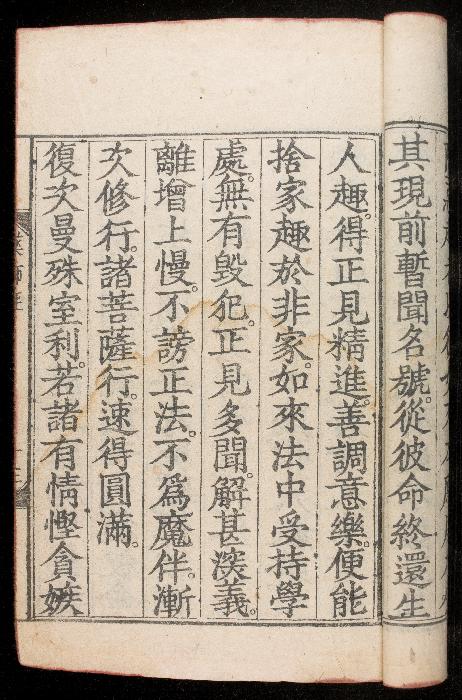 其現前暫聞名號。從彼命終還生
人趣。得正見精進。善調意樂。便能
捨家趣於非家。如來法中受持學
處。無有毀犯。正見多聞。解甚深義。
離增上慢。不謗正法。不為魔伴。漸
次修行。諸菩薩行。速得圓滿。
復次曼殊室利。若諸有情慳貪嫉